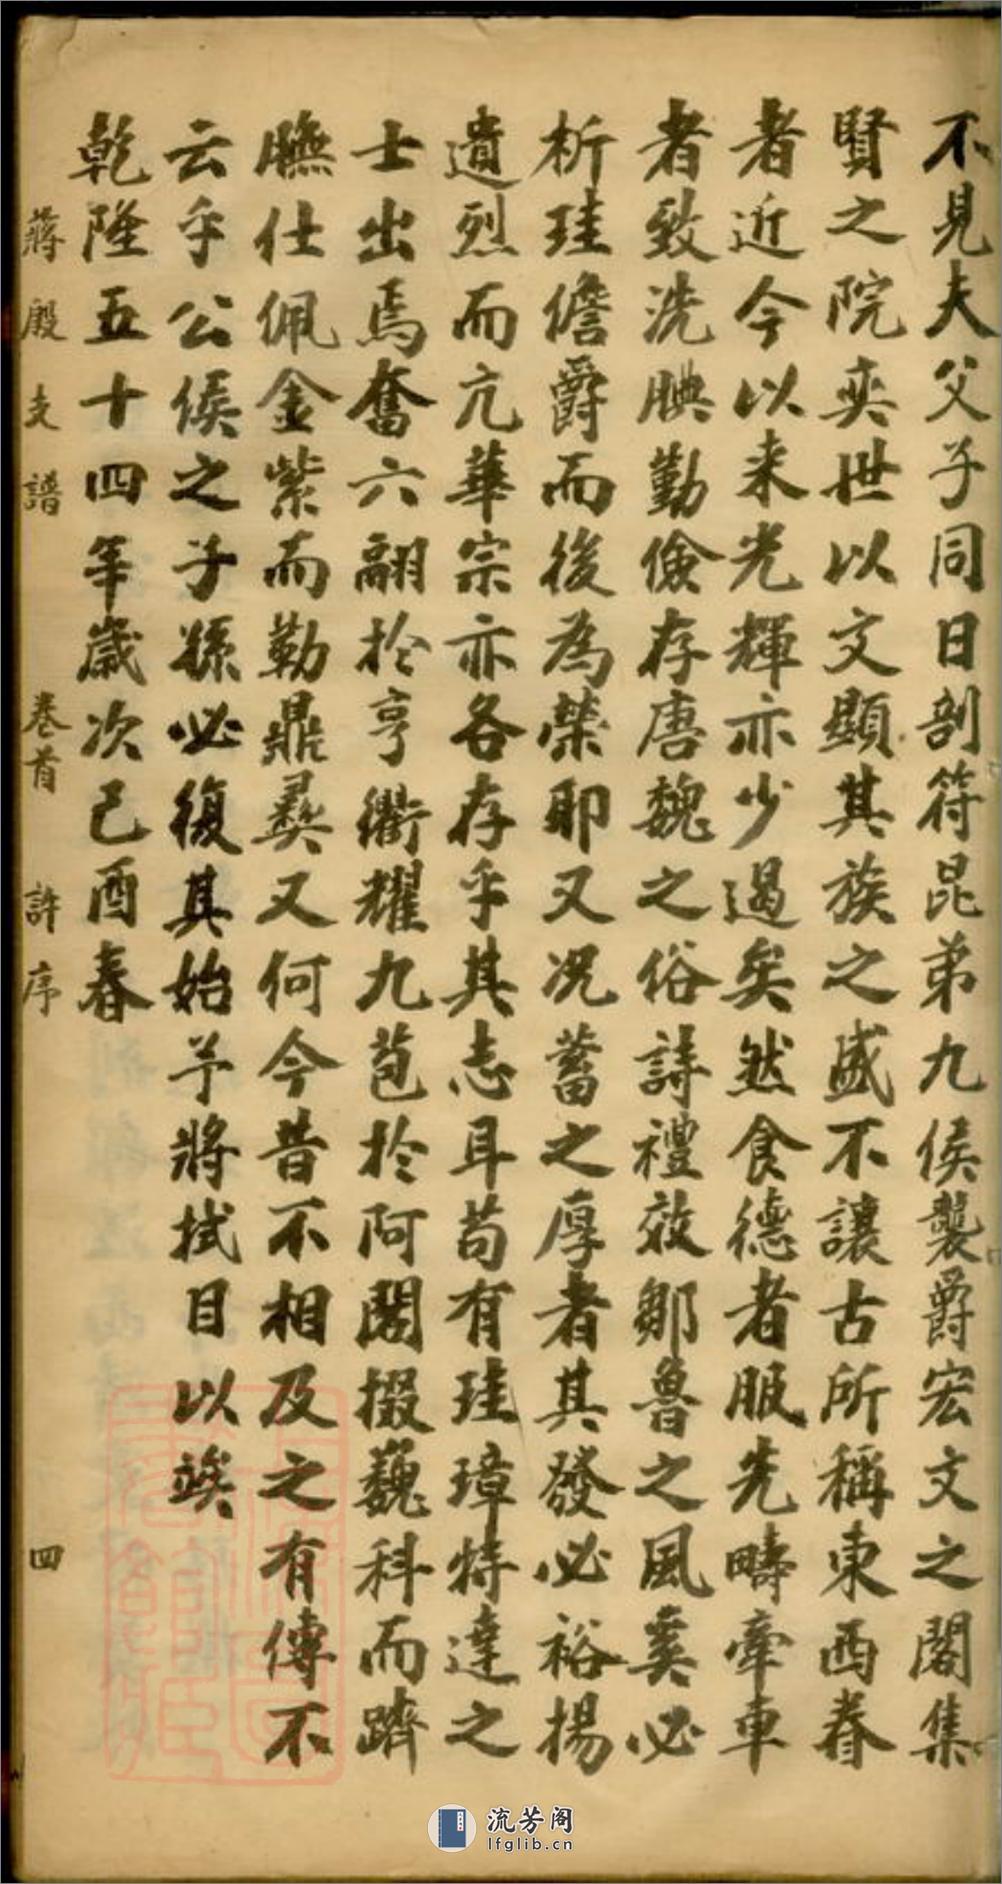 不見夫父子同日剖符昆弟九侯襲爵宏文之閣集
賢之院奕世以文顯其族之盛不讓古所稱東西眷
者近今以来光輝亦少遏矣然食德者服先疇牽車
者致洗腆勤儉存唐魏之俗詩禮效鄒魯之風奚必
析珪儋爵而後為榮耶又况蓄之厚者其發必裕揚
遺烈而亢華宗亦各存乎其志耳苟有珪璋特達之
士出焉奮六翮扵亨衢耀九苞扵阿閣掇巍科而躋
膴仕佩金紫而勒鼎彝又何今昔不相及之有傳不
云乎公侯之子孫必復其始予將拭目以竢
乾隆五十四年歲次己酉春
蔣殿支譜 卷首 許序 四
流芳阁
lfglib.cn